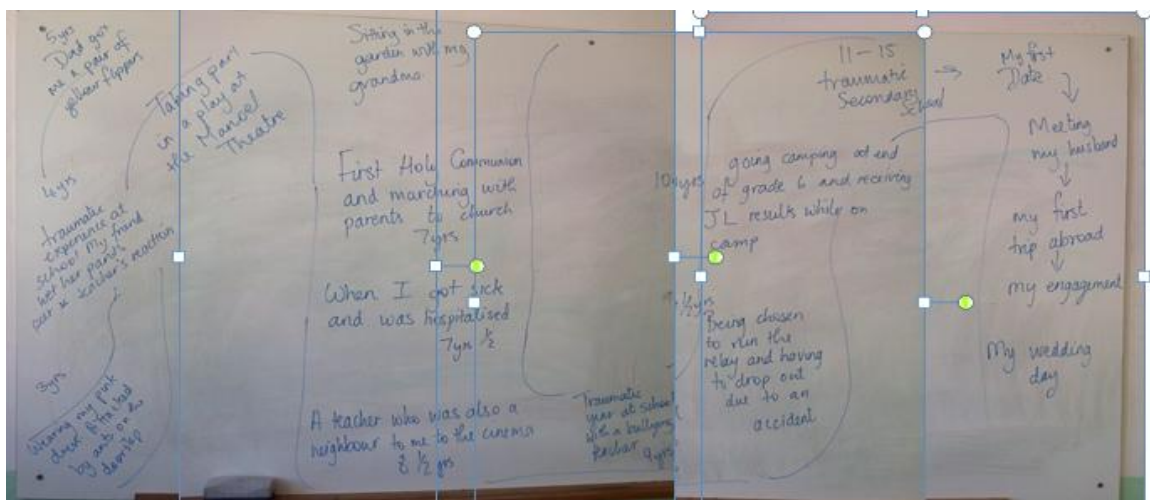 5yrs
Dad got
me a pair of
yellow flippers
4yrs
traumatic
experience at
school my friend
wet her pants
teacher's reaction
3yrs
Wearing my pink
dress & attacked
by ants on the
doorstep
Taking part
in a play at
the Manoel
Theatre
Sitting in the
garden with my
grandma.
First Holy Communion
and marching with
parents to church
7yrs
When I got sick
and was hospitalised
7yrs ½
A teacher who was also a
neighbour to me to the cinema
½ yrs
Traumatic
year at school
with a bullying
teacher
9yrs
½yrs
Being chosen
to run the
relay and having
to drop out
due to an
accident
10
going camping at end
of grade 6 and receiving
JL results while on
camp
11-15
traumatic
Secondary
School
My first
Date
Meeting
my husband
my first
trip abroad
my engagement
My wedding
day